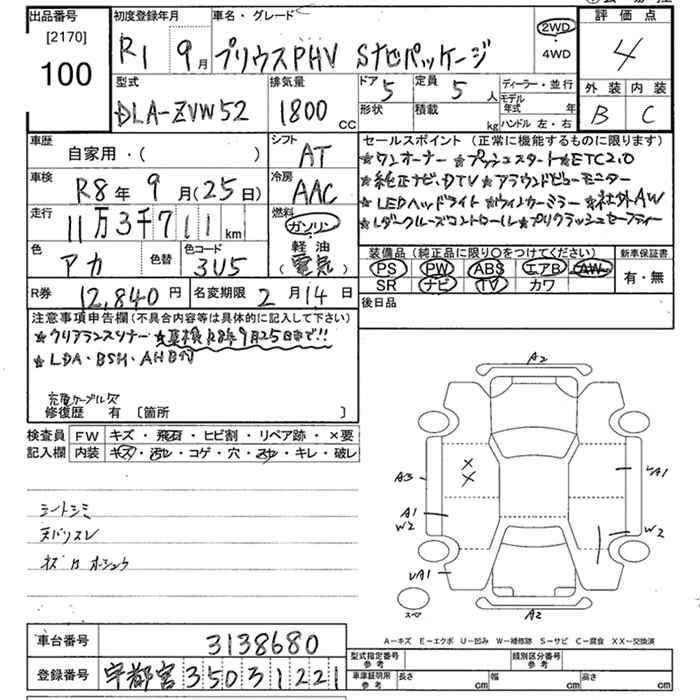 出品番号
[2170]
100
初度登録年月
R1 9月
車名・グレード
プリウスPHV Sナビパッケージ
2WD
4WD
評価点
4
外装 内装
B C
型式
DLA-ZVW52
排気量
1800 CC
ドア 5
形状
定員 5 人
積載 kg
ディーラー・並行
モデル年式 年
ハンドル 左・右
車歴
自家用・( )
シフト
AT
車検
R8年9月(25日)
冷房
AAC
走行
11万3千711km
燃料
ガソリン
軽油
(電気)
色
アカ
色替
色コード
3U5
R券 12,840円
名変期限 2月14日
セールスポイント (正常に機能するものに限ります)
★ワンオーナー ★プッシュスタート★ETC2.0
★純正ナビ、DTV ★アラウンドビューモニター
★LEDヘッドライト ★ウィンカーミラー ★社外AW
★レーダークルーズコントロール★プリクラッシュセーフティー
装備品 (純正品に限り○をつけてください)
PS PW ABS エアB AW
SR ナビ TV カワ
新車保証書
有・無
後日品
注意事項申告欄(不具合内容等は具体的に記入して下さい)
★クリアランスソナー ★車検R8年9月25日まで!!
★LDA・BSM・AHB付
充電ケーブル欠
修復歴 有 [箇所 ]
検査員
記入欄
FW キズ・飛石・ヒビ割・リペア跡・×要
内装 キズ・汚レ・コゲ・穴・スレ・キレ・破レ
シートシミ
天バリスレ
A2
A3
A1
W2
A1
W2
A1
A2
スペ
A－キズ E－エクボ U－凹み W－補修跡 S－サビ C－腐食 XX－交換済
車台番号 3138680
登録番号 宇都宮350 3 1221
型式指定番号
参考
類別区分番号
参考
車庫証明用
参考
長さ cm
幅 cm
高さ cm